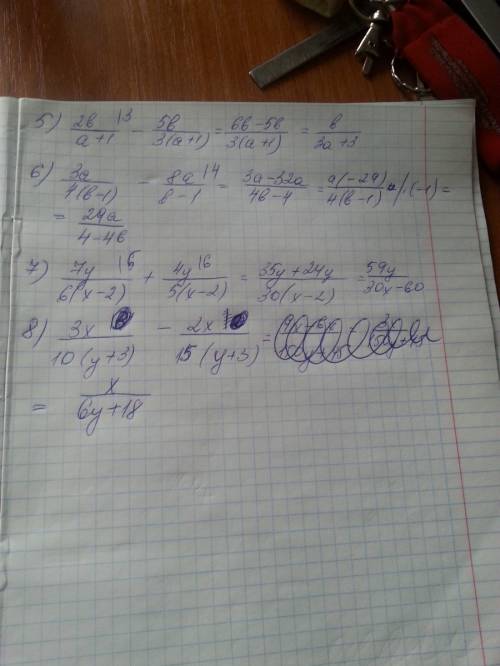 5) 2b/(a+1) |3 - 5b/(3(a+1)) = (6b-5b)/(3(a+1)) = b/(3a+3)
6) 3a/(4(b-1)) - 8a/(b-1) |4 = (3a-32a)/(4b-4) = a(-29)/(4(b-1)) /·(-1) =
= 29a/(4-4b)
7) 7y/(6(x-2)) |5 + 4y/(5(x-2)) |6 = (35y+24y)/(30(x-2)) = 59y/(30x-60)
8) 3x/(10(y+3)) - 2x/(15(y+3)) =
= x/(6y+18)